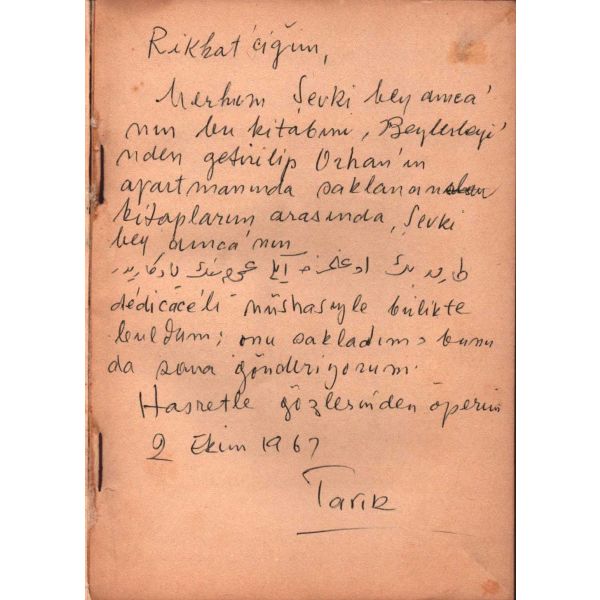 Rikkat'ciğim,
Merhum Şevki bey amca'
nın bu kitabını, Beylerbeyi'
nden getirilip Orhan'ın
apartmanında saklanan
kitapların arasında, Şevki
bey amca'nın
dédicace'li nüshasıyle birlikte
buldum; onu sakladım, bunu
da sana gönderiyorum.
Hasretle gözlerinden öperim
2 Ekim 1967
Tarık